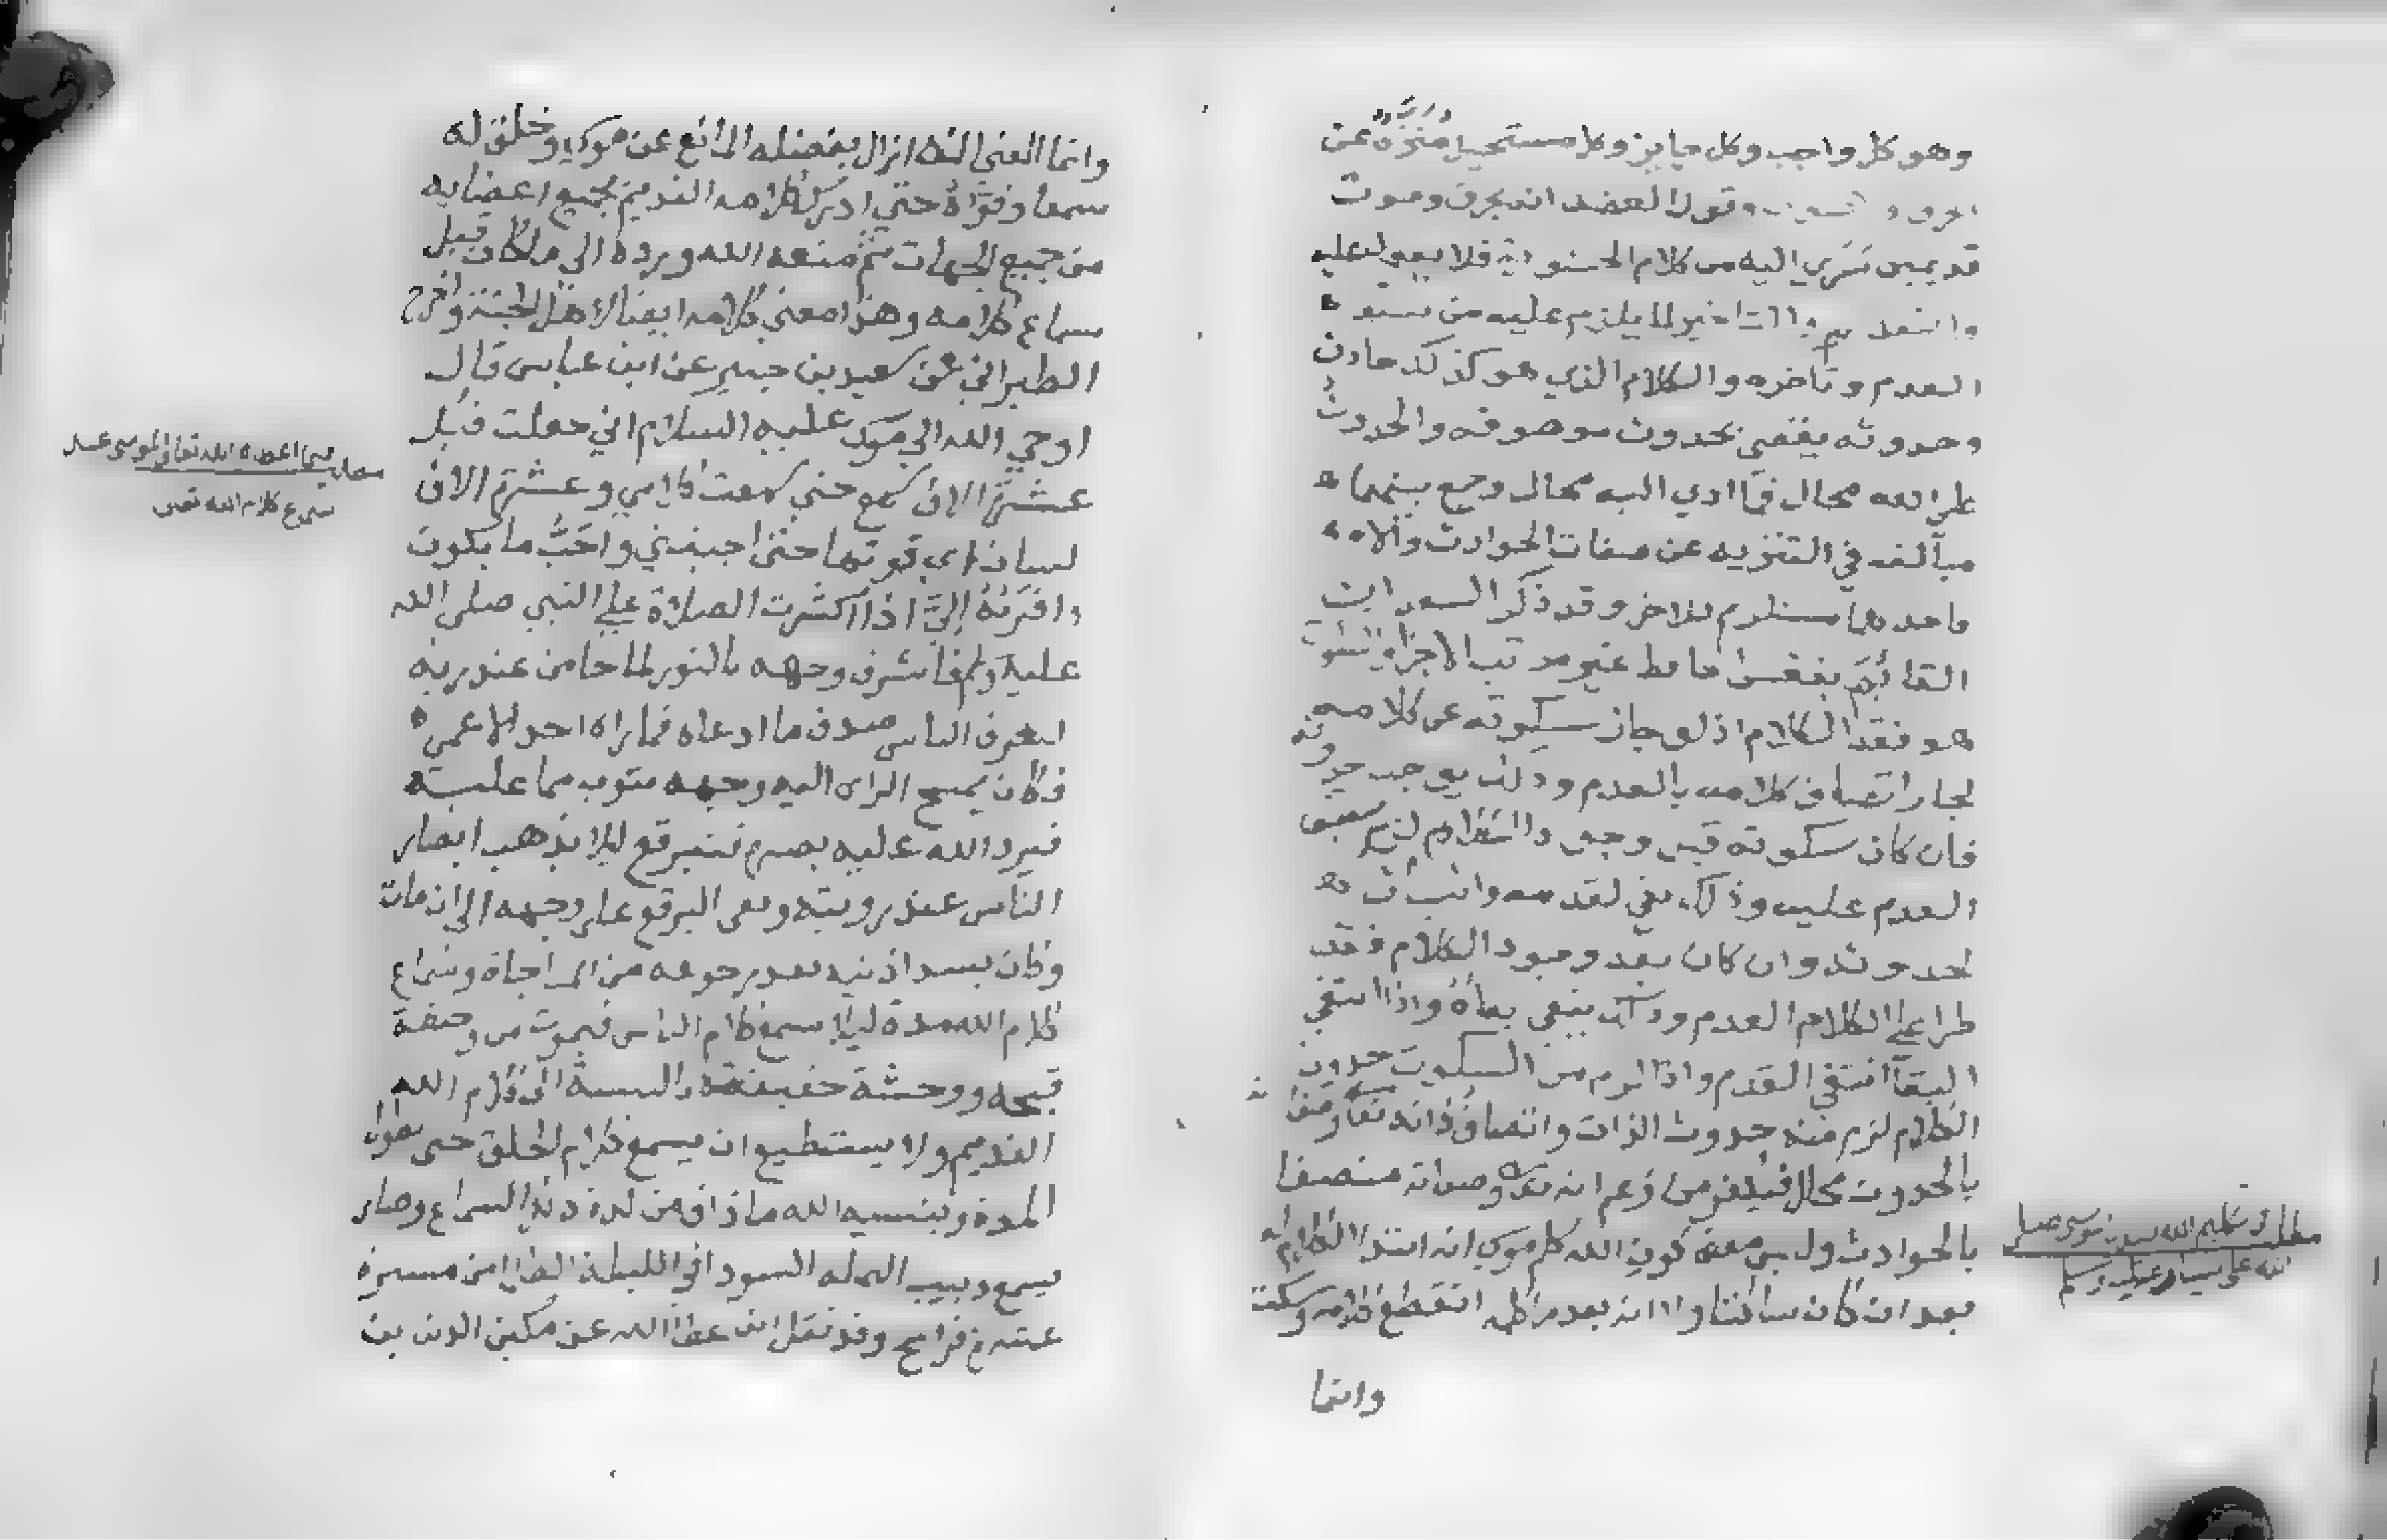 وهو كل واجب وكل جايز وكل مستحيل منزه عن
وقول العضد انه بحرف وصوت
قديمين سري اليه من كلام الحشوية فلا يعول عليه
والتاخير لما يلزم عليه من سبق
العدم وتاخره والكلام الذي هو كذلك حادث
وحدوثه يقضي بحدوث موصوفه والحدوث
على الله محال فما ادي اليه محال وجمع بينهما
مبالغه في التنزيه عن صفات الحوادث والا
فاحدهما مستلزم للاخر وقد ذكر السعد ان
القايم بنفس الحافظ غير مرتب الاجزا والسكوت
هو فقد الكلام اذ لو جاز سكوته عن كلامه
لجاز اتصاف كلامه بالعدم وذلك يوجب حدوثه
فان كان سكوته قبل وجود الكلام لزم سبق
العدم عليه وذلك نفي لقدمه واثبات
لحدوثه وان كان بعد وجود الكلام فقد
طرا على الكلام العدم وذلك ينفي بقاه واذا انتفي
البقا انتفي القدم واذا لزم من السكوت حدوث
الكلام لزم منه حدوث الذات واتصاف ذاته تعالى وصفاته
بالحدوث محال فيكفر من زعم انه تعالى وصفاته متصفا
بالحوادث وليس معنى كون الله كلم موسى انه ابتدا الكلام له
بعد ان كان ساكتا ولا انه بعد ما كلمه انقطع كلامه وسكت
وانما
مطلب تكليم الله لسيدنا موسى صلى
الله على نبينا وعليه وسلم
وانما المعني انه ازال بفضله المانع عن موسى وخلق له
سمعا وقواه حتي ادرك كلامه القديم بجميع اعضايه
من جميع الجهات ثم منعه الله ورده الي ما كان قبل
سماع كلامه وهذا معني كلامه ايضا لاهل الجنة واخرج
الطبراني عن سعيد بن جبير عن ابن عباس قال
اوحي الله الي موسى عليه السلام اني جعلت فيك
عشرة الاف سمع حتي سمعت كلامي وعشرة الاف
لسان اي قوتها حتي اجبتني واحب ما يكون
واقربه إليَّ اذا اكثرت الصلاة على النبي صلى الله
عليه وسلم فاشرف وجهه بالنور لما جا من عند ربه
ليعرف الناس صدق ما ادعاه فما راه احد الا عمي
فكان يمسح الراي اليه وجهه بثوب مما عليه
فيرد الله عليه بصره فتبرقع ليلا يذهب ابصار
الناس عند رويته وبقى البرقع على وجهه الى ان مات
وكان يسد اذنيه بعد رجوعه من المناجاة وسماع
كلام الله مدة ليلا يسمع كلام الناس فيموت من وحشة
قبحه ووحشة حقيقته بالنسبة الى كلام الله
القديم ولا يستطيع ان يسمع كلام الخلق حتى تطول
المدة وينسيه الله ما ذاق من لذة ذلك السماع وصار
يسمع دبيب النملة السودا في الليلة الظلما من مسيرة
عشرة فراسخ وقد نقل ابن عطا الله عن مكين الدين بن
مطلب فيما اعطاه الله تعالى لموسى عند
سماع كلام الله تعالى